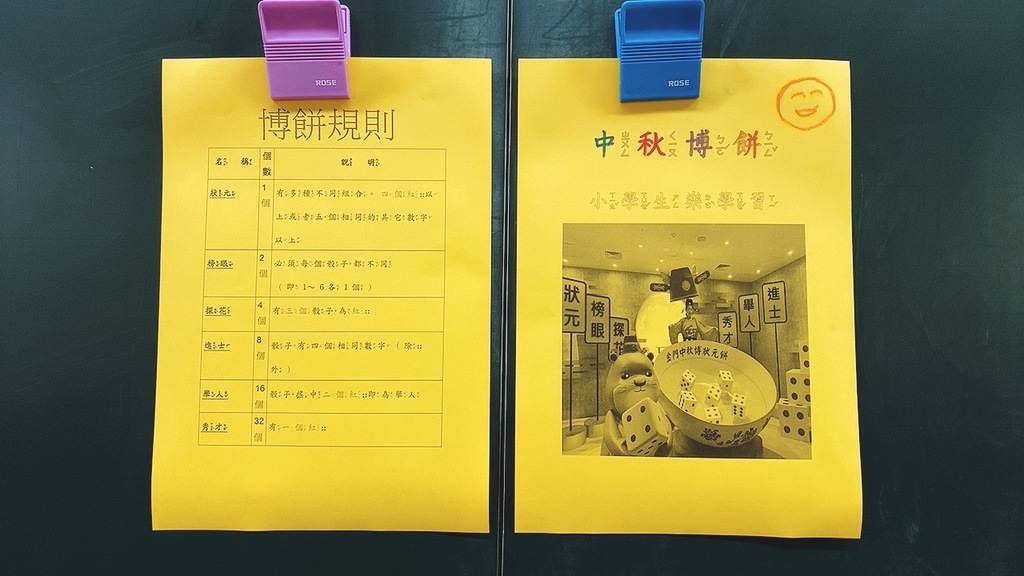 ROSE
博餅規則
名稱 個數 說明
狀元 1個 有多種不同組合。四個紅::以
上或者五個相同的其它數字
以上
榜眼 2個 必須每個骰子都不同
(即 1~6 各 1 個)
探花 4個 有三個骰子為紅::
進士 8個 骰子有四個相同數字(除::
外)
舉人 16個 骰子搖中二個紅::即為舉人
秀才 32個 有一個紅::
ROSE
中ㄓㄨㄥ秋ㄑㄧㄡ博ㄅㄛˊ餅ㄅㄧㄥˇ
小學生樂學習
狀元
榜眼
探花
秀才
舉人
進士
金門中秋博狀元餅